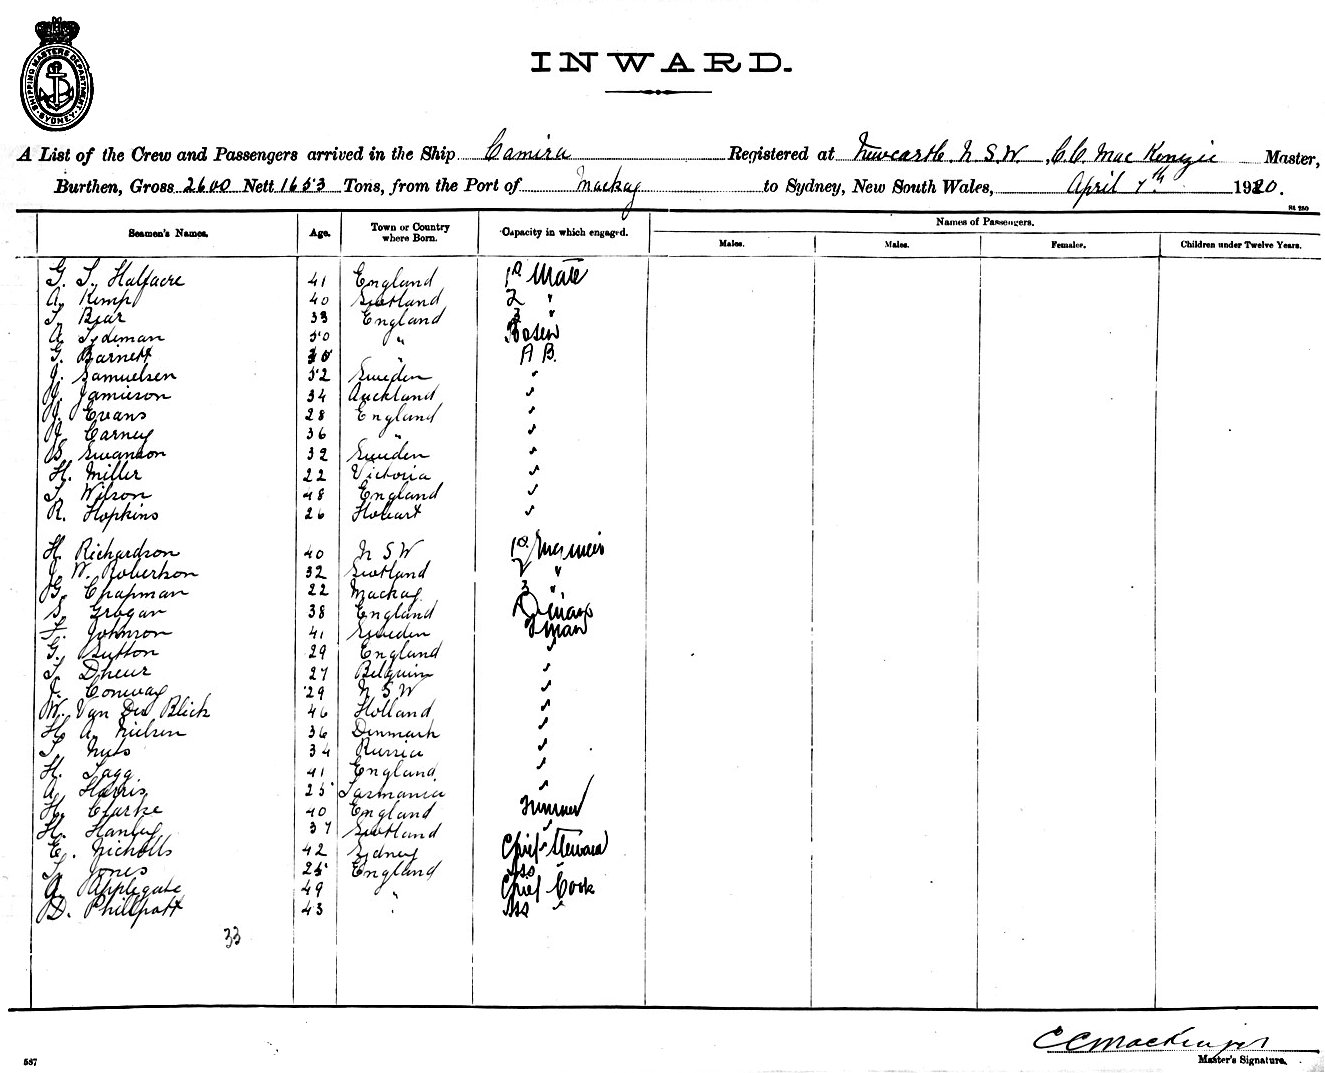 SHIPPING MASTERS DEPARTMENT SYDNEY
INWARD.
A List of the Crew and Passengers arrived in the Ship Camira Registered at Newcastle N S W, C.C. MacKenzie Master,
Burthen, Gross 2600 Nett 1653 Tons, from the Port of Mackay to Sydney, New South Wales, April 7th 1920.
St 250
Seamen's Names. Age. Town or Country where Born. Capacity in which engaged. Names of Passengers.
Males. Males. Females. Children under Twelve Years.
G. S. Halfacre 41 England 1st Mate
A. Kemp 40 Scotland 2 "
T. Bear 33 England 3 "
A. Tydeman 50 " Bosun
G. Barnett 30 " A B.
J. Samuelsen 52 Sweden "
J. Jamieson 34 Auckland "
J. Evans 28 England "
J. Carney 36 " "
B. Swanson 32 Sweden "
H. Miller 22 Victoria "
T. Wilson 48 England "
R. Hopkins 26 Hobart "
H. Richardson 40 N S W 1st Engineer
J. W. Robertson 32 Scotland 2 "
G. Chapman 22 Mackay 3 "
S. Grogan 38 England
F. Johnson 41 Sweden Fman
G. Sutton 29 England "
T. Dheur 27 Belguim "
J. Conway 29 N S W "
W. Van Der Blick 46 Holland "
H. A. Nielsen 36 Denmark "
T. Nuts 34 Russia "
H. Tagg 41 England "
A. Harris 25 Tasmania "
H. Clarke 40 England Trimmer
H. Hanley 37 Scotland "
E. Nicholls 42 Sydney Chief Steward
T. Jones 25 England Ass "
A. Applegate 49 " Chief Cook
D. Phillpott 43 " Ass "
33
C C MacKenzie
Master's Signature.
587